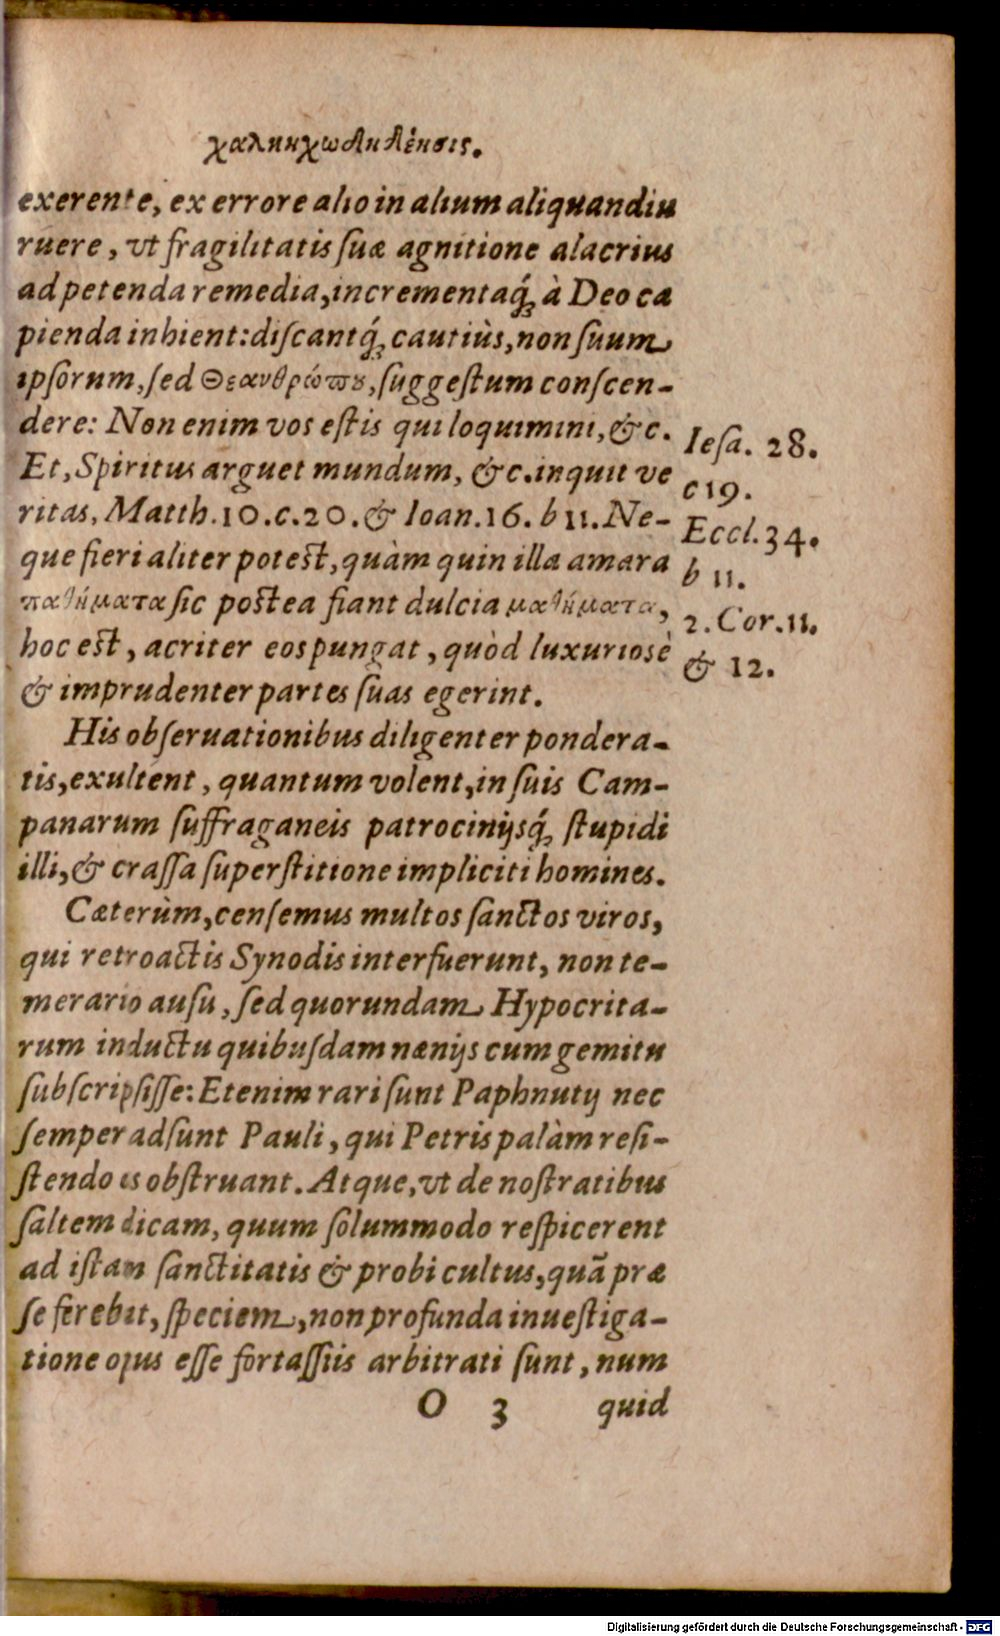 exerente, ex errore alio in alium aliquandiu
ruere, vt fragilitatis ſuæ agnitione alacrius
ad petenda remedia, incrementaq́; à Deo ca
pienda inhient: diſcantq́; cautiùs, non ſuum
ipſorum, ſed Θεανθρώπου, ſuggeſtum conſcen-
dere: Non enim vos eſtis qui loquimini, &c.
Et, Spiritus arguet mundum, &c. inquit ve
ritas, Matth. 10. c. 20. & Ioan. 16. b 11. Ne-
que fieri aliter poteſt, quàm quin illa amara
παθήματα ſic poſtea fiant dulcia μαθήματα,
hoc eſt, acriter eos pungat, quòd luxuriosè
& imprudenter partes ſuas egerint.
Ieſa. 28.
c 19.
Eccl. 34.
b 11.
2. Cor. 11.
& 12.
His obſeruationibus diligenter pondera-
tis, exultent, quantum volent, in ſuis Cam-
panarum ſuffraganeis patrocinijsq́; ſtupidi
illi, & craſſa ſuperſtitione impliciti homines.
Cæterùm, cenſemus multos ſanctos viros,
qui retroactis Synodis interfuerunt, non te-
merario auſu, ſed quorundam Hypocrita-
rum inductu quibuſdam nænijs cum gemitu
ſubſcripſiſſe: Etenim rari ſunt Paphnutij nec
ſemper adſunt Pauli, qui Petris palàm reſi-
ſtendo os obſtruant. Atque, vt de noſtratibus
ſaltem dicam, quum ſolummodo reſpicerent
ad iſtam ſanctitatis & probi cultus, quã præ
ſe ferebāt, ſpeciem, non profunda inueſtiga-
tione opus eſſe fortaſſiis arbitrati ſunt, num
O 3 quid
Digitalisierung gefördert durch die Deutsche Forschungsgemeinschaft - DFG